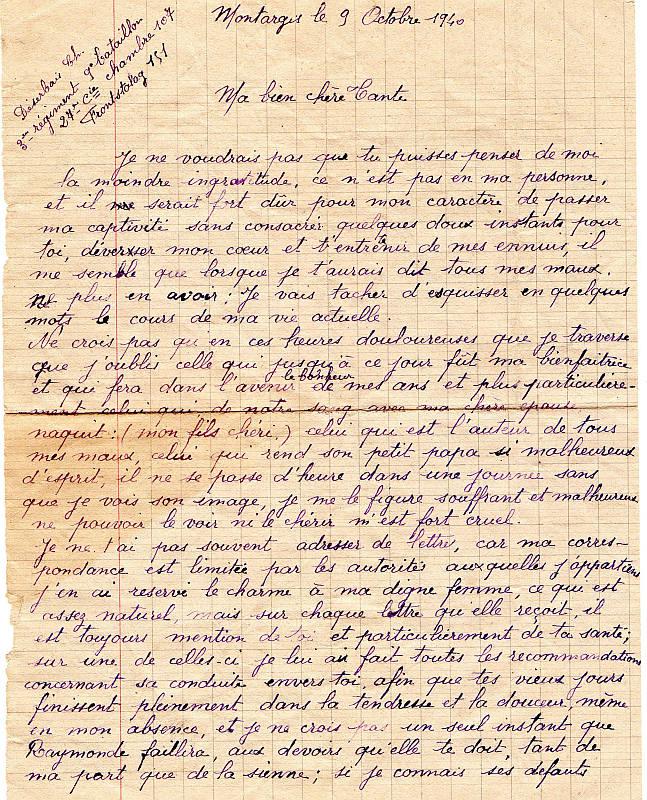 Montargis le 9 Octobre 1940
Déserbais Ch.
3me régiment 9e bataillon
27me Cie chambre 107
Frontstalag 151
Ma bien chère Tante
Je ne voudrais pas que tu puisses penser de moi
la moindre ingratitude, ce n'est pas en ma personne,
et il me serait fort dur pour mon caractère de passer
ma captivité sans consacrer quelques doux instants pour
toi, déverser mon cœur et t'entretenir de mes ennuis, il
me semble que lorsque je t'aurais dit tous mes maux.
ne plus en avoir : Je vais tacher d'esquisser en quelques
mots le cours de ma vie actuelle.
Ne crois pas qu'en ces heures douloureuses que je traverse
que j'oublis celle qui jusqu'à ce jour fût ma bienfaitrice
et qui fera dans l'avenir le bonheur de mes ans et plus particulière-
ment celui qui de notre sang avec ma chère épouse
naquit : (mon fils chéri,) celui qui est l'auteur de tous
mes maux, celui qui rend son petit papa si malheureux
d'esprit, il ne se passe d'heure dans une journée sans
que je vois son image, je me le figure souffrant et malheureux
ne pouvoir le voir ni le chérir m'est fort cruel.
Je ne t'ai pas souvent adresser de lettre, car ma corres-
pondance est limitée par les autorités auxquelles j'appartiens
j'en ai reservé le charme à ma digne femme, ce qui est
assez naturel, mais sur chaque lettre qu'elle reçoit, il
est toujours mention de toi et particulièrement de ta santé ;
sur une de celles-ci je lui ai fait toutes les recommandations
concernant sa conduite envers toi, afin que tes vieux jours
finissent pleinement dans la tendresse et la douceur, même
en mon absence, et je ne crois pas un seul instant que
Raymonde faillira, aux devoirs qu'elle te doit, tant de
ma part que de la sienne ; si je connais ses défauts